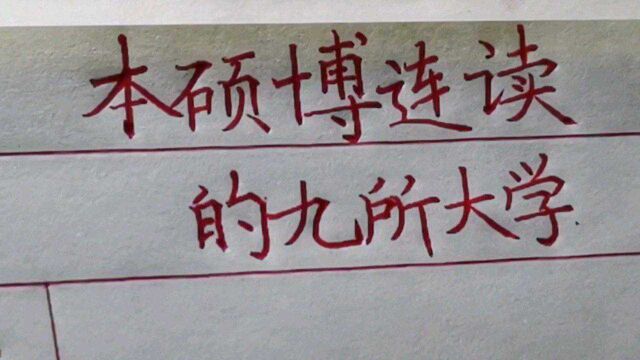 本硕博连读
的九所大学